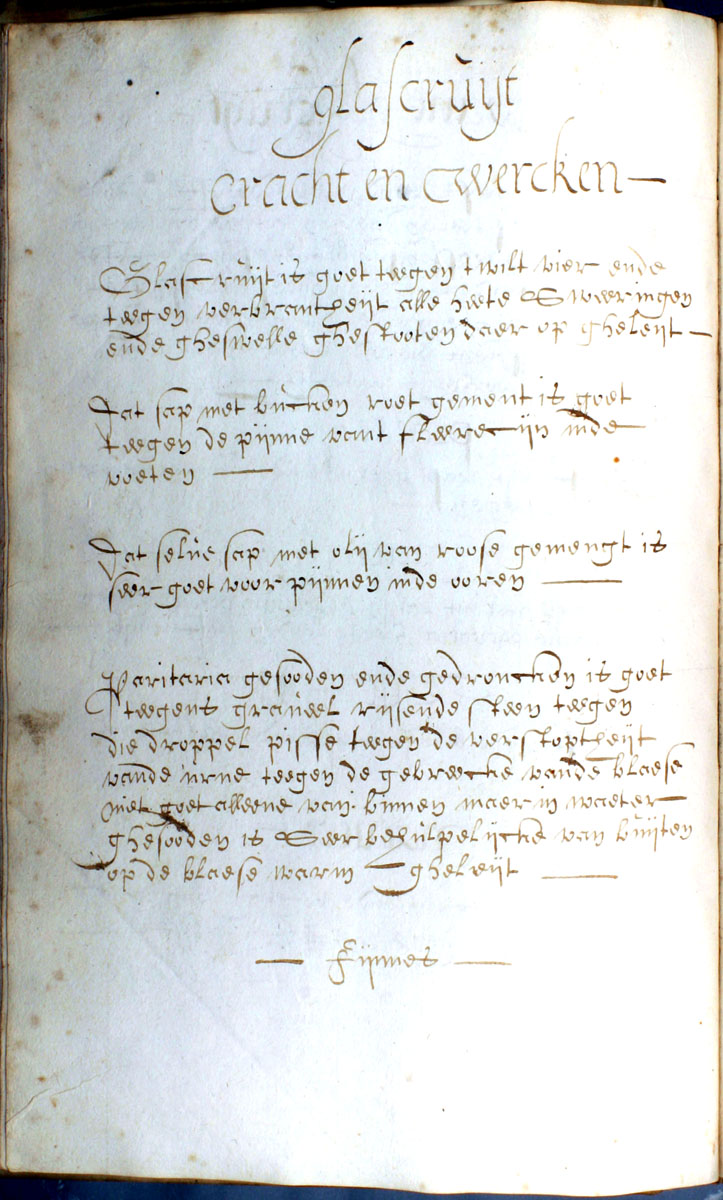 glascruijt
cracht en cwercken
Glascruijt is goet teegen twilt vier ende
teegen verbrantheijt alle heete Sweeringen
ende gheswelle ghestooten daer op gheleijt
Dat sap met bucken roet gement is goet
teegen de pijnne vant fleerecijn inde
voeten
Dat selve sap met olij van roose gemengt is
seer goet voor pijnnen inde ooren
Paritaria gesooden ende gedroncken is goet
teegens graveel rijsende steen teegen
die droppel pisse teegen de verstoptheijt
vande urne teegen de gebreecke vande blaese
niet goet alleene van binnen maer in waeter
ghesooden is Seer behulpelijcke van buijten
op de blaese warm gheleijt
Fijnnes